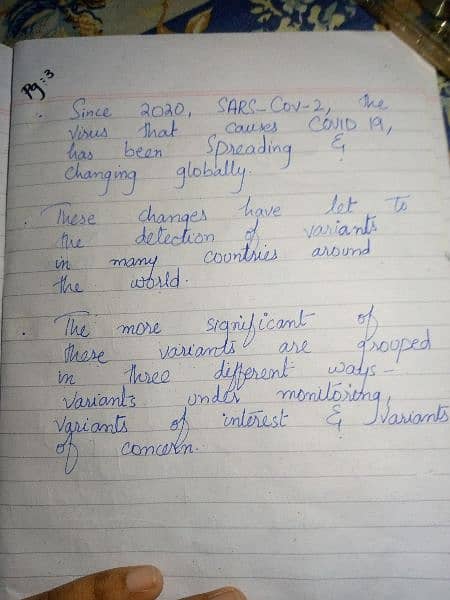 Pg:3
. Since 2020, SARS-Cov-2, the
virus that causes COVID 19,
has been Spreading &
changing globally.
. These changes have let to
the detection of variants
in many countries around
the world.
. The more significant of
these variants are grouped
in three different ways -
variants under monitoring,
variants of interest & variants
of concern.